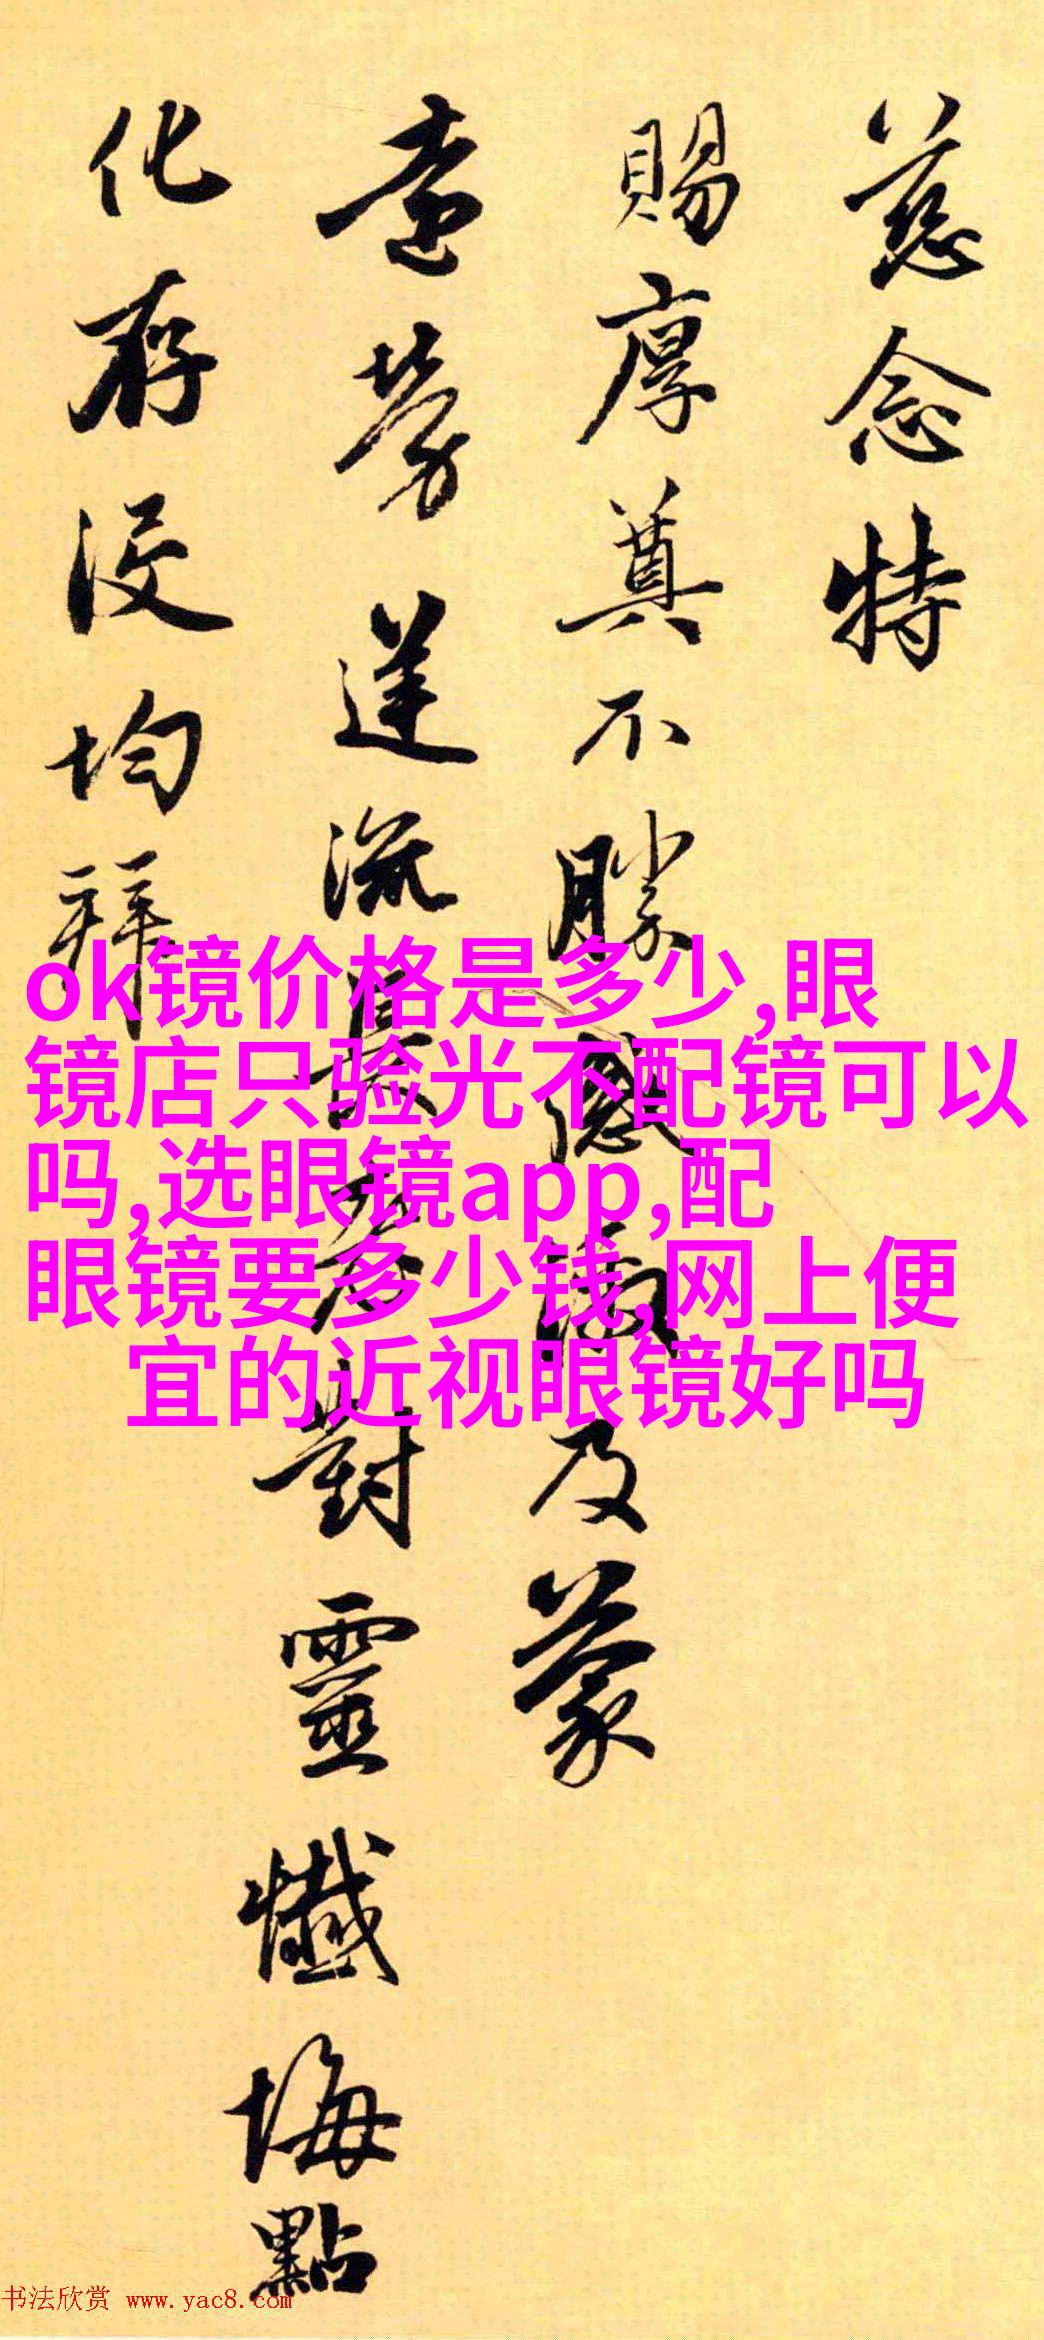 慈念特
賜厚奠不勝感激及蒙
遠勞蓬流長老對靈懺悔點
化存没均拜
ok镜价格是多少,眼
镜店只验光不配镜可以
吗,选眼镜app,配
眼镜要多少钱,网上便
宜的近视眼镜好吗
书法欣赏 www.yac8.com